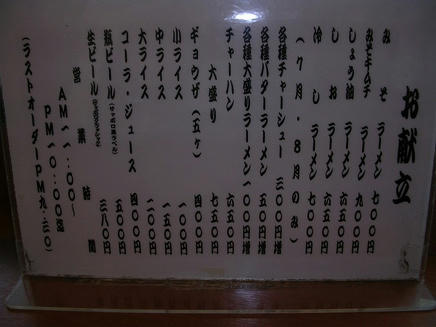 お献立
みそラーメン 七〇〇円
みそキムチラーメン 九〇〇円
しょう油ラーメン 六五〇円
しおラーメン 六五〇円
冷しラーメン 七〇〇円
(7月・8月のみ)
各種チャーシュー 三〇〇円増
各種バターラーメン 五〇円増
各種大盛りラーメン 一〇〇円増
チャーハン 六五〇円
大盛り 七五〇円
ギョウザ(五ヶ) 四〇〇円
小ライス 一〇〇円
中ライス 一五〇円
大ライス 二〇〇円
コーラ・ジュース 四〇〇円
瓶ビール(サッポロ黒ラベル) 五〇〇円
生ビール 三八〇円
営業時間
AM一一:〇〇〜
PM一〇:〇〇迄
(ラストオーダーPM九:三〇)